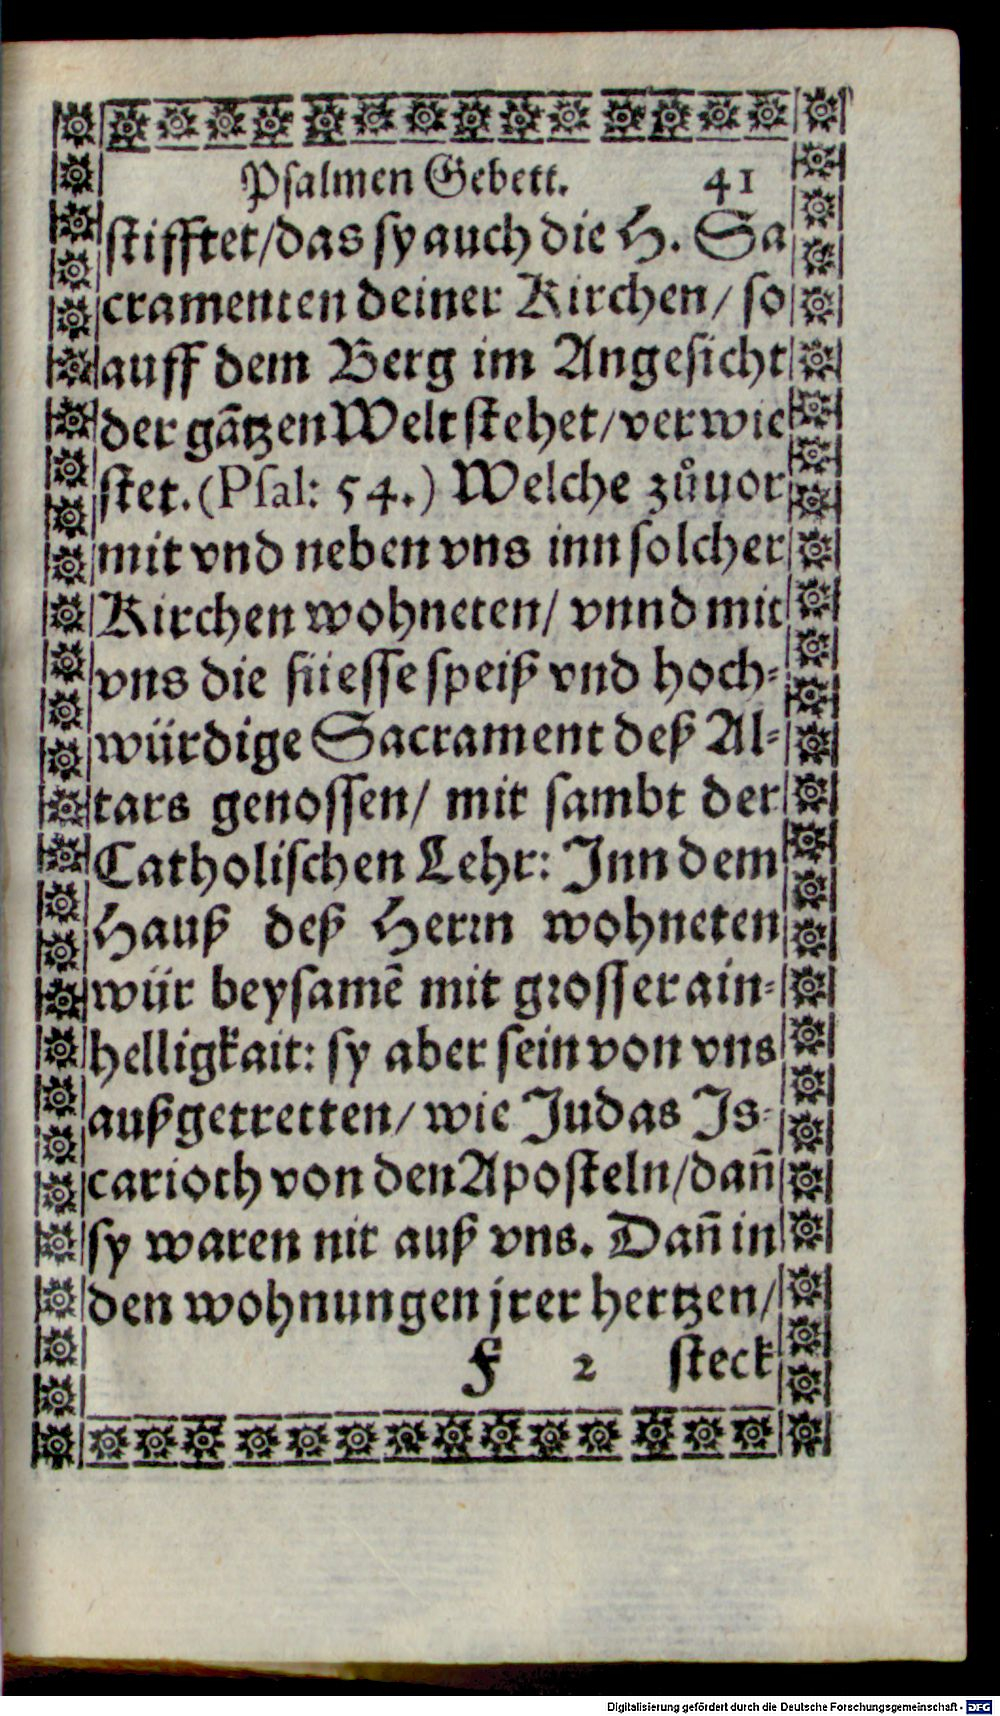 Psalmen Gebett. 41
stifftet/das sy auch die H. Sa
cramenten deiner Kirchen/ so
auff dem Berg im Angesicht
der gãtzen Welt stehet/verwie
stet.(Psal: 54.) Welche zůuor
mit vnd neben vns inn solcher
Kirchen wohneten/ vnnd mit
vns die süesse speiß vnd hoch-
würdige Sacrament deß Al-
tars genossen/ mit sambt der
Catholischen Lehr: Inn dem
Hauß deß Herrn wohneten
wür beysamẽ mit grosser ain-
helligkait: sy aber sein von vns
außgetretten/ wie Judas Js-
carioth von den Aposteln/dañ
sy waren nit auß vns. Dañ in
den wohnungen jrer hertzen/
F 2 steck
Digitalisierung gefördert durch die Deutsche Forschungsgemeinschaft - DFG